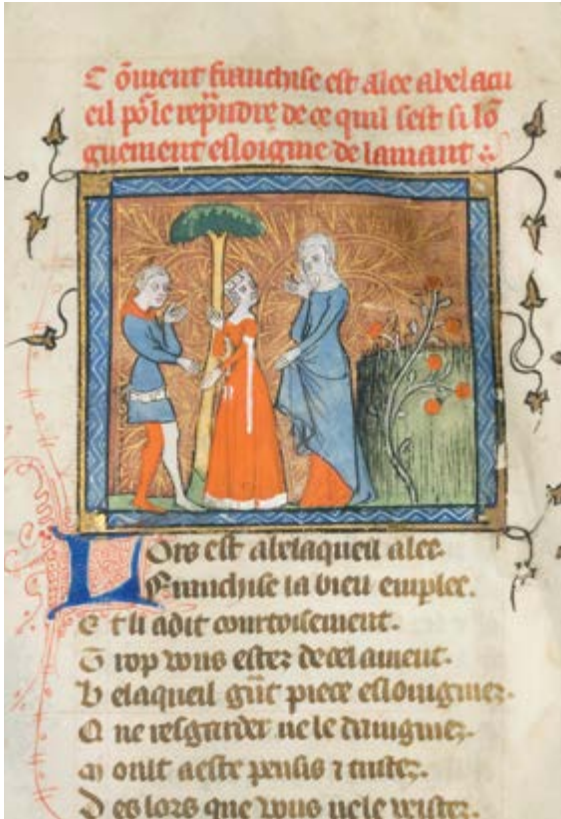 C õment franchise est alee abelacu
eil põ le repñdre de ce quil sest si lõ
guement esloignie de lamant
Lors est abelaqueil alee.
Franchise la bien emplee.
E t li adit courtoisement.
T rop vous estez de cel ameut.
B elaqueil gñt piece esloingniez.
Q ne resgarder ne le daingniez.
M oult aeste pensis ⁊ tristez.
D es lors que vous ne le veistez.